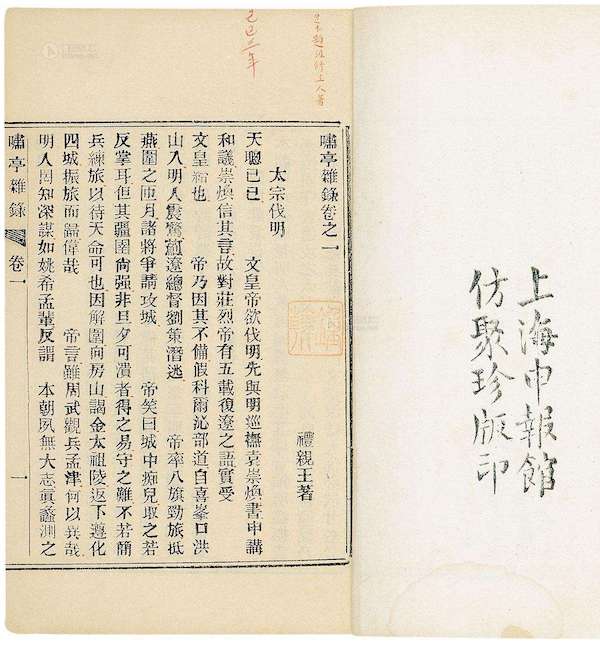 上海申報館
仿聚珍版印
汲修主人著
己巳三年
嘯亭雜錄卷之一
禮親王著
太宗伐明
天聰己巳 文皇帝欲伐明先與明巡撫袁崇煥書申講
和議崇煥信其言故對莊烈帝有五載復遼之語實受
文皇紿也 帝乃因其不備假科爾沁部道自喜峯口洪
山入明人震驚薊遼總督劉策潛逃 帝率八旗勁旅抵
燕圍之匝月諸將爭請攻城 帝笑曰城中癡兒取之若
反掌耳但其疆圉尚強非旦夕可潰者得之易守之難不若簡
兵練旅以待天命可也因解圍向房山謁金太祖陵返下遵化
四城振旅而歸偉哉 帝言雖周武觀兵孟津何以異哉
明人罔知深謀如姚希孟輩反謂 本朝夙無大志眞蠡測之
嘯亭雜錄 卷一 一